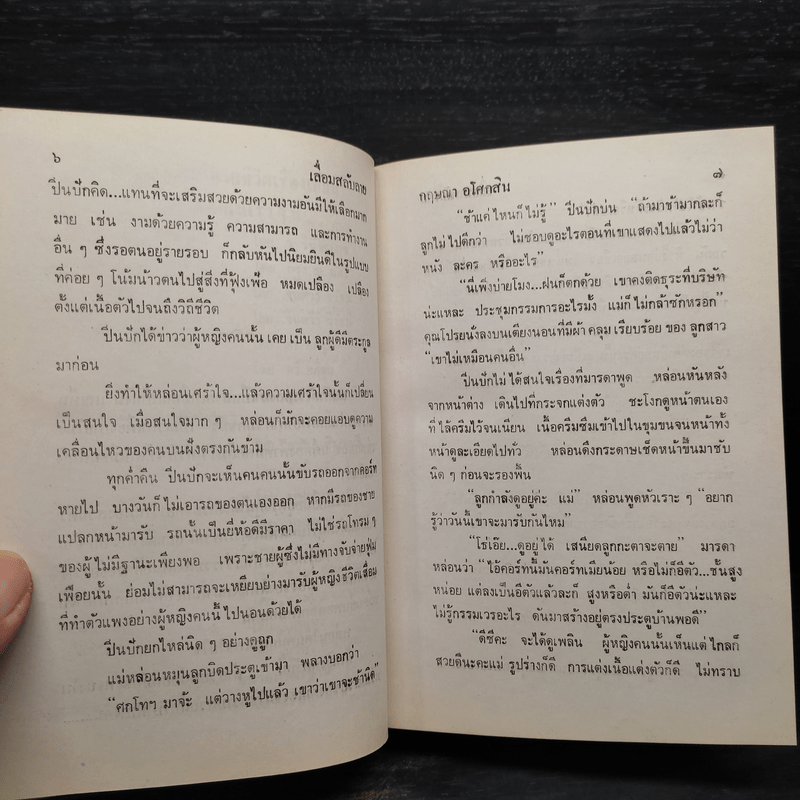 ๖
เลื่อมสลับลาย
ปีนปักคิด...แทนที่จะเสริมสวยด้วยความงามอันมีให้เลือกมาก
มาย เช่น งามด้วยความรู้ ความสามารถ และการทำงาน
อื่น ๆ ซึ่งรอตนอยู่รายรอบ ก็กลับหันไปนิยมยินดีในรูปแบบ
ที่ค่อย ๆ โน้มน้าวตนไปสู่สิ่งที่ฟุ้งเฟ้อ หมดเปลือง เปลือง
ตั้งแต่เนื้อตัวไปจนถึงวิถีชีวิต
ปีนปักได้ข่าวว่าผู้หญิงคนนั้น เคย เป็น ลูกผู้ดีมีตระกูล
มาก่อน
ยิ่งทำให้หล่อนเศร้าใจ...แล้วความเศร้าใจนั้นก็เปลี่ยน
เป็นสนใจ เมื่อสนใจมาก ๆ หล่อนก็มักจะคอยแอบดูความ
เคลื่อนไหวของคนบนฝั่งตรงกันข้าม
ทุกค่ำคืน ปีนปักจะเห็นคนคนนั้นขับรถออกจากคอร์ท
หายไป บางวันก็ไม่เอารถของตนเองออก หากมีรถของชาย
แปลกหน้ามารับ รถนั้นเป็นยี่ห้อดีมีราคา ไม่ใช่รถโทรม ๆ
ของผู้ไม่มีฐานะเพียงพอ เพราะชายผู้ซึ่งไม่มีทางจับจ่ายฟุ่ม
เฟือยนั้น ย่อมไม่สามารถจะเหยียบย่างมารับผู้หญิงชีวิตเสื่อม
ที่ทำตัวแพงอย่างผู้หญิงคนนี้ไปนอนด้วยได้
ปีนปักยกไหล่นิด ๆ อย่างดูถูก
แม่หล่อนหมุนลูกบิดประตูเข้ามา พลางบอกว่า
“ศกโทฯ มาจ้ะ แต่วางหูไปแล้ว เขาว่าเขาจะช้านิด”
๗
กฤษณา อโศกสิน
“ช้าแค่ไหนก็ไม่รู้” ปีนปักบ่น “ถ้ามาช้ามากละก็
ลูกไม่ไปดีกว่า ไม่ชอบดูอะไรตอนที่เขาแสดงไปแล้วไม่ว่า
หนัง ละคร หรืออะไร”
“นี่เพิ่งบ่ายโมง...ฝนก็ตกด้วย เขาคงติดธุระที่บริษัท
น่ะแหละ ประชุมกรรมการอะไรมั้ง แม่ก็ไม่กล้าซักหรอก”
คุณโปรยนั่งลงบนเตียงนอนที่มีผ้า คลุม เรียบร้อย ของ ลูกสาว
“เขาไม่เหมือนคนอื่น”
ปีนปักไม่ได้สนใจเรื่องที่มารดาพูด หล่อนหันหลัง
จากหน้าต่าง เดินไปที่กระจกแต่งตัว ชะโงกดูหน้าตนเอง
ที่ไล้ครีมไว้จนเนียน เนื้อครีมซึมเข้าไปในขุมขนจนหน้าทั้ง
หน้าดูละเอียดไปทั่ว หล่อนดึงกระดาษเช็ดหน้าขึ้นมาซับ
นิด ๆ ก่อนจะรองพื้น
“ลูกกำลังดูอยู่ค่ะ แม่” หล่อนพูดหัวเราะ ๆ “อยาก
รู้ว่าวันนี้เขาจะมารับกันไหม”
“โธ่เอ๊ย...ดูอยู่ได้ เสนียดลูกกะตาจะตาย” มารดา
หล่อนว่า “ไอ้คอร์ทนี้มันคอร์ทเมียน้อย หรือไม่ก็อีตัว...ชั้นสูง
หน่อย แต่ลงเป็นอีตัวแล้วละก็ สูงหรือต่ำ มันก็อีตัวน่ะแหละ
ไม่รู้กรรมเวรอะไร ดันมาสร้างอยู่ตรงประตูบ้านพอดี”
“ดีซีคะ จะได้ดูเพลิน ผู้หญิงคนนั้นเห็นแต่ไกลก็
สวยดีนะคะแม่ รูปร่างก็ดี การแต่งเนื้อแต่งตัวก็ดี ไม่ทราบ